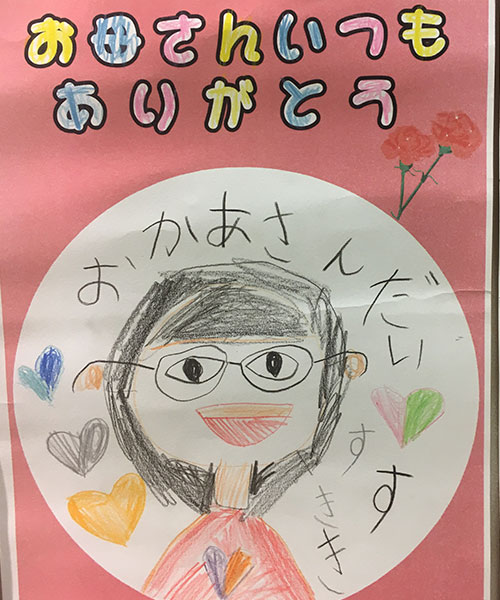 お母さんいつも
ありがとう
おかあさんだいすき
すき